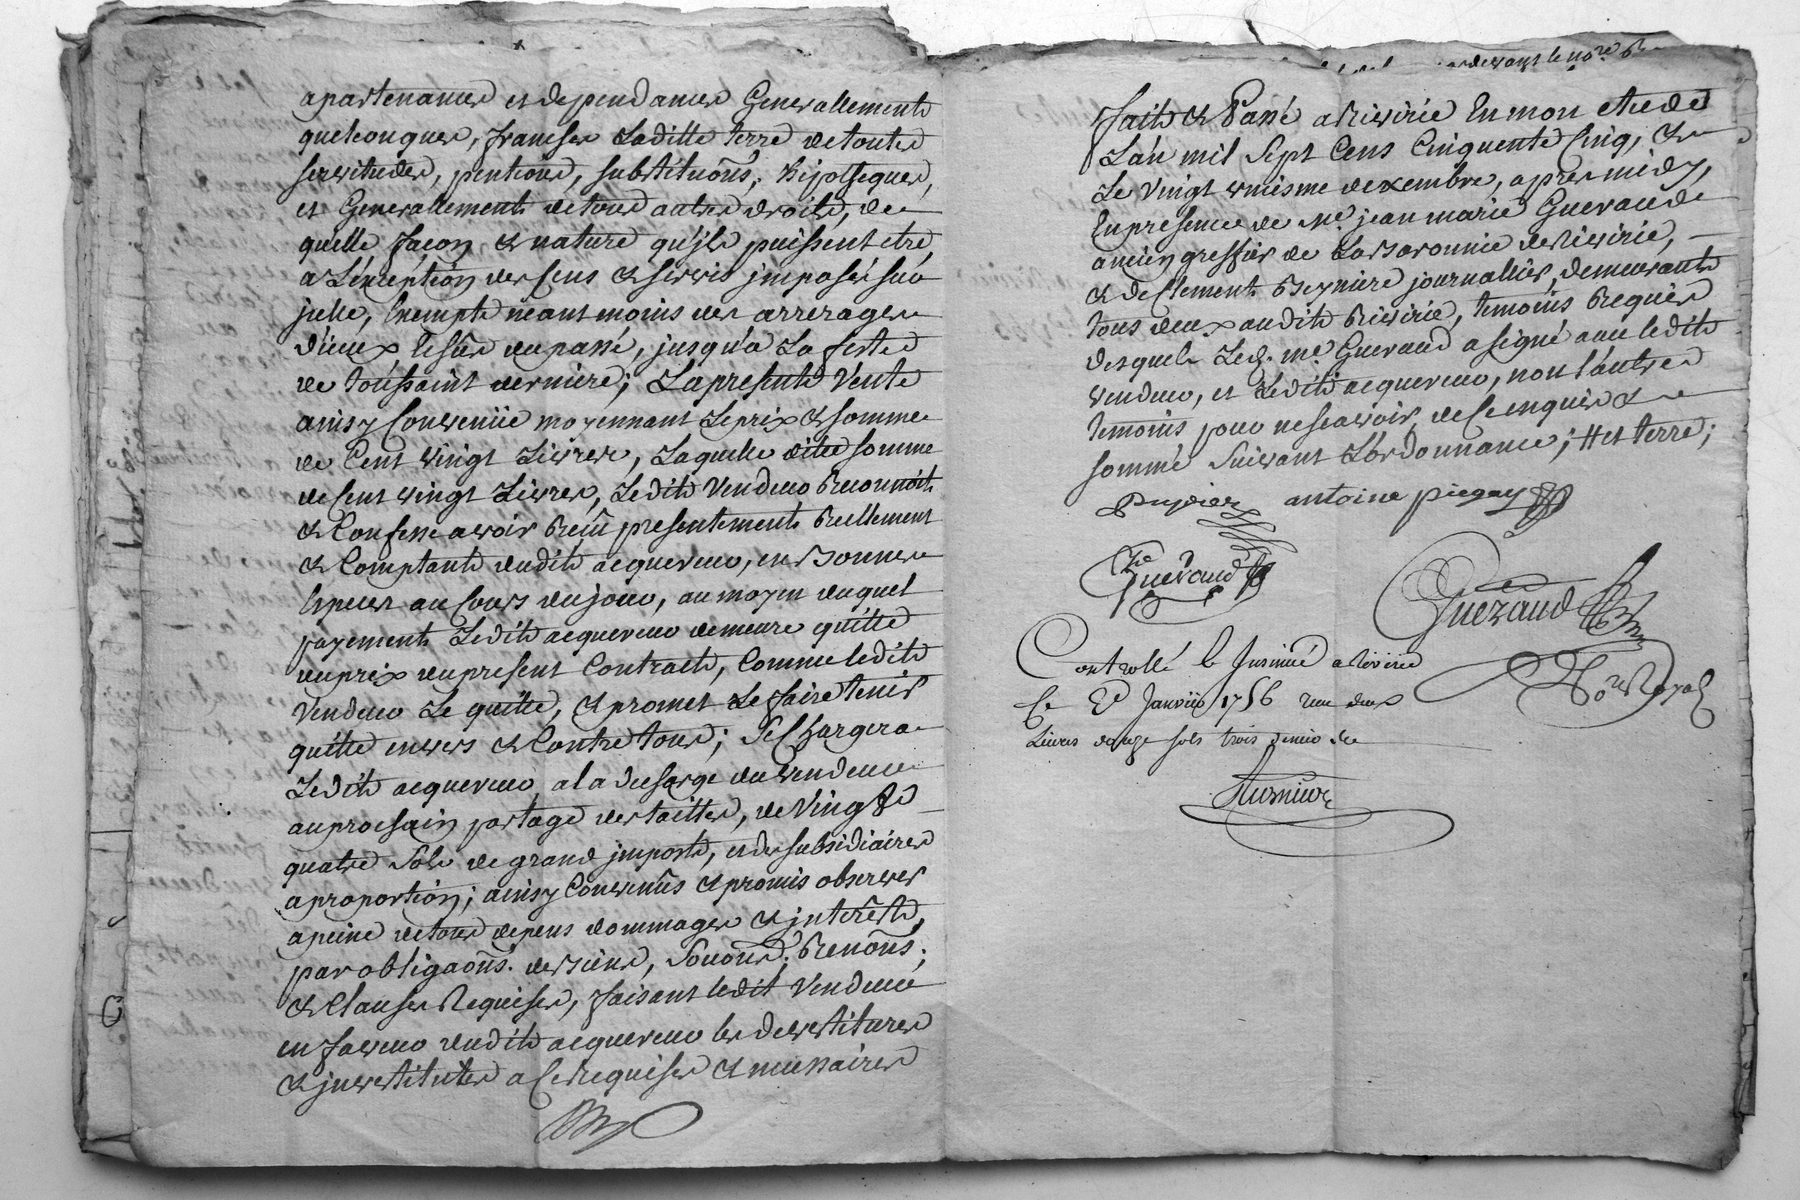 apartenances et dependances Generallement
quelconques, franche Laditte terre de toutes
servitudes, pentions, substituõns, hipotheques,
et Generallement de tous autres droits, de
quelle façon & nature qu'ils puissent etre
a L'exception des Cens & servis jmposés sur
jcelle, Exempte neantmoins des arrerages
d'iceux du passé, jusqu'a La feste
de toussaint derniere; La presente Vente
ainsy Convenüe moyennant Le prix & somme
de Cent vingt Livres, Laquelle ditte somme
de Cent vingt Livres, Ledit Vendeur Reconnoit
& Confesse avoir Reçû presentement Reellement
& Comptant dudit acquereur, en bonnes
Especes au Cours du jour, au moyen duquel
payement Ledit acquereur demeure quitte
du prix du present Contract, Comme ledit
Vendeur Le quitte, & promet Le faire tenir
quitte envers & Contre tous; Se Chargera
Ledit acquereur a la descharge du vendeur
au prochain partage des tailles, de Vingt
quatre Sols de grand jmposts, et des subsidiaires
a proportion; ainsy Convenûs & promis observer
a peine de tous depens dommages & jnterêsts,
par obligaõns. de biens, Renõns;
& Clauses Requises, faisant ledit Vendeur
en faveur dudit acquereur les devestitures
& jnvestitutes a Ce Requises & necessaires
fait & Passé a Riverie En mon etude
L'an mil Sept Cens Cinquente Cinq, &
Le Vingt uniesme dexembre, apres midy,
En presence de Me. jean marie Gueraud
ancien greffier de La Baronnie de Riverie,
& de Clement Beyniere journallier, demeurants
tous deux audit Riverie, temoins Requis
desquels Led. me. Gueraud a signé avec ledit
vendeur, et Ledit acquereur, non l'autre
temoins pour ne sçavoir, de Ce enquis &
sommé Suivant L'ordonnance; # et terre;
antoine piegay
Gueraud
Gueraud
Nore Royal
Controllé & Jnsinué a Riverie
le Janvier 1756 reçu deux
Livres sols trois denier